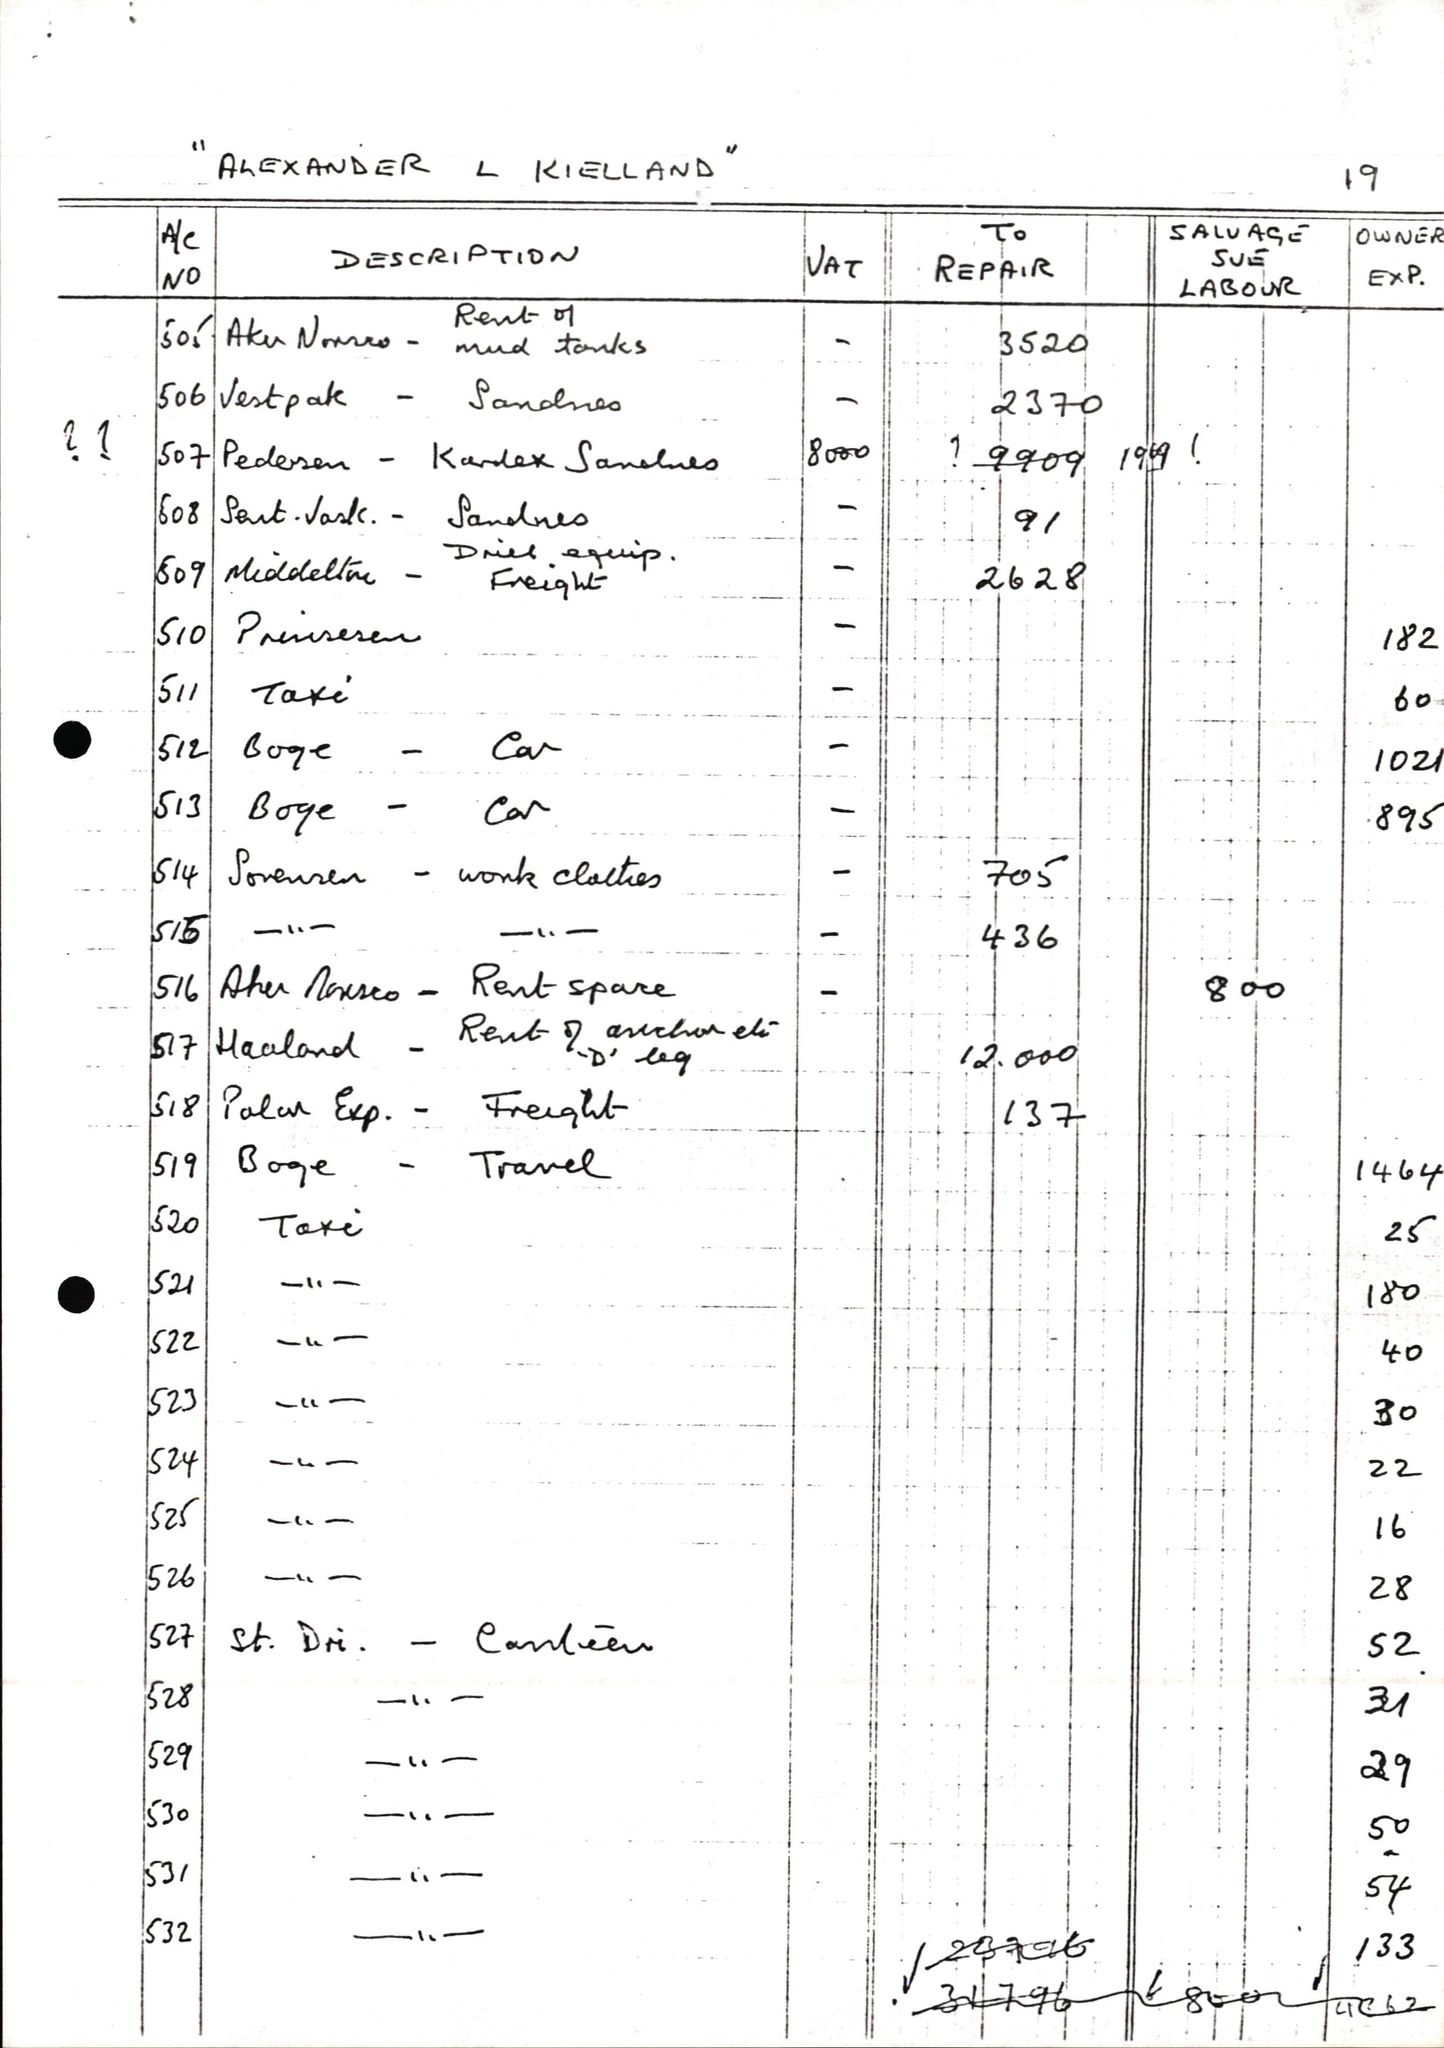 "ALEXANDER L KIELLAND" 19
A/C NO DESCRIPTION VAT TO REPAIR SALVAGE SUE LABOUR OWNER EXP.
505 Aker Norsco - Rent of mud tanks - 3520
506 Vestpak - Sandnes - 2370
?? 507 Pedersen - Kardex Sandnes 8000 ? 9909 1909 !
508 Sent. Vask. - Sandnes - 91
509 Middelton - Drill equip. Freight - 2628
510 Prinsesen - 182
511 Taxi - 60
512 Boge - Car - 1021
513 Boge - Car - 895
514 Sorensen - work clothes - 705
515 —"— —"— - 436
516 Aker Norsco - Rent spare - 800
517 Haaland - Rent of anchor etc 'D' leg 12.000
518 Polar Exp. - Freight 137
519 Boge - Travel 1464
520 Taxi 25
521 —"— 180
522 —"— 40
523 —"— 30
524 —"— 22
525 —"— 16
526 —"— 28
527 St. Dri. - Canteen 52
528 —"— 31
529 —"— 29
530 —"— 50
531 —"— 54
532 —"— 133
31796 800